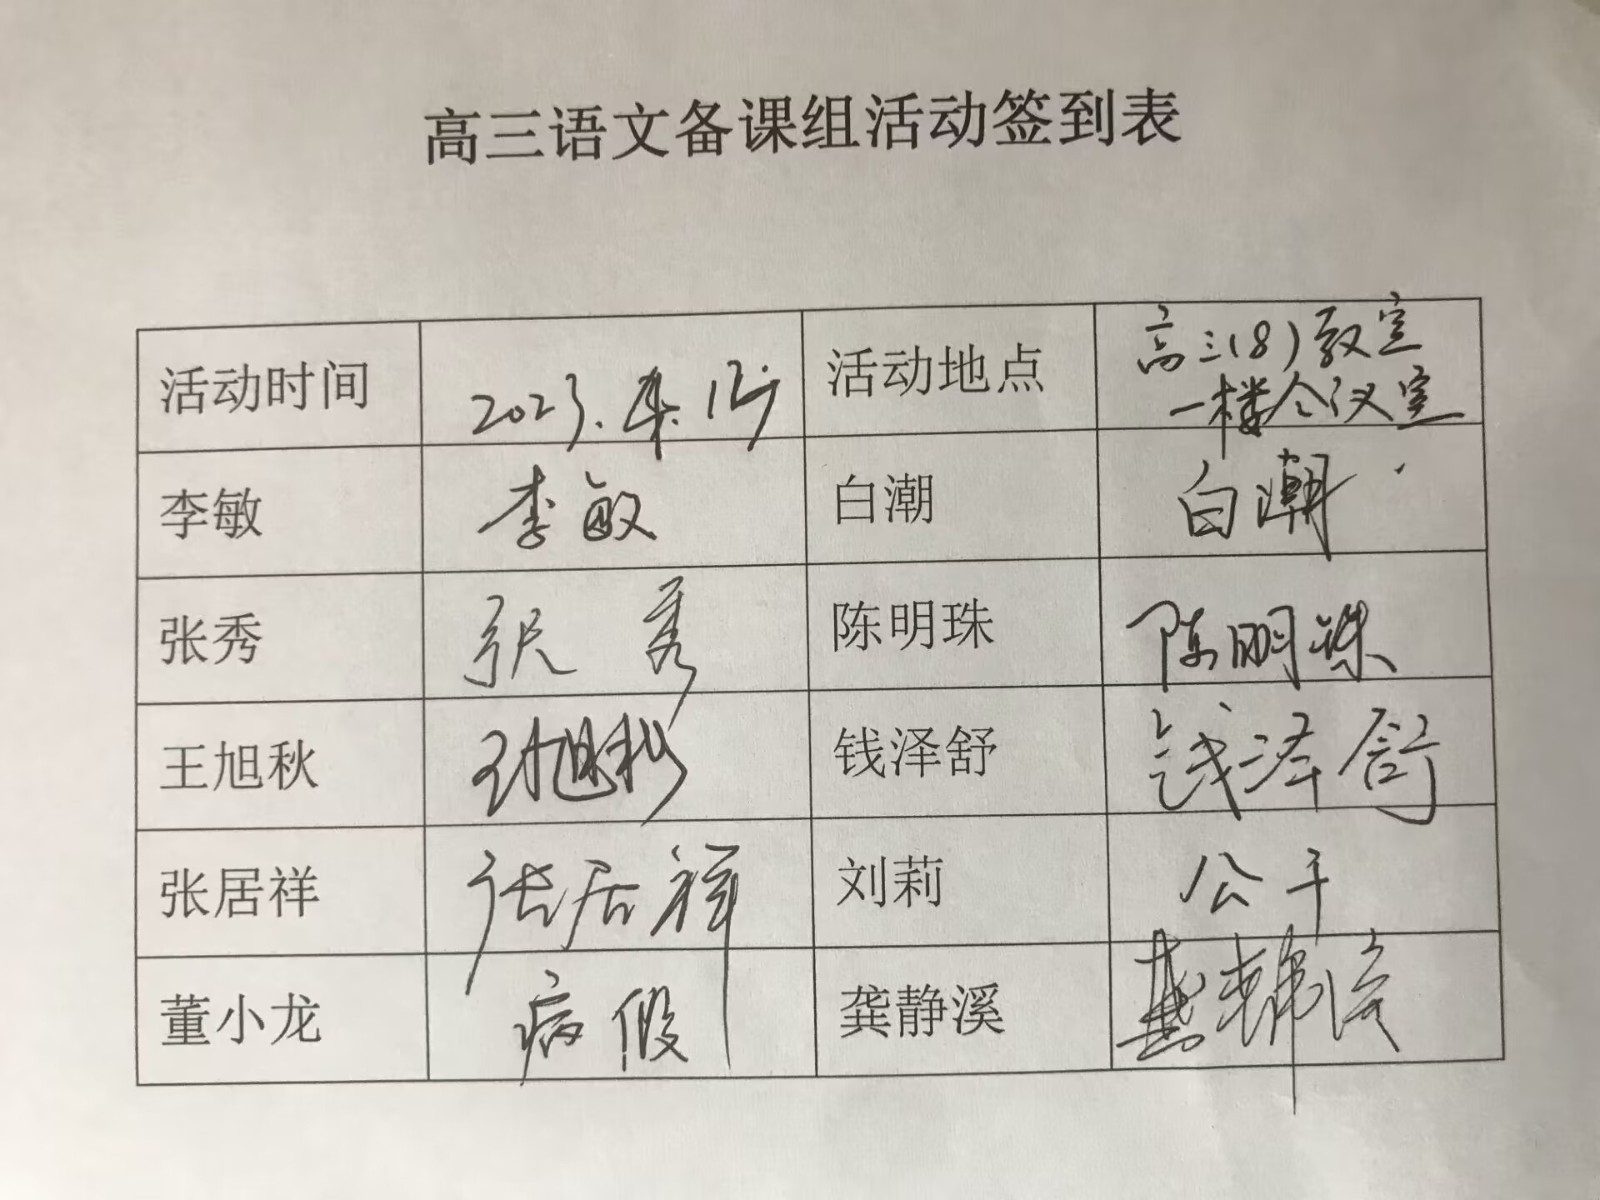 高三语文备课组活动签到表
活动时间 2023.4. 活动地点 高三(8)教室
一楼会议室
李敏 李敏 白潮 白潮
张秀 张秀 陈明珠 陈明珠
王旭秋 王旭秋 钱泽舒 钱泽舒
张居祥 张居祥 刘莉 公干
董小龙 病假 龚静溪 龚静溪